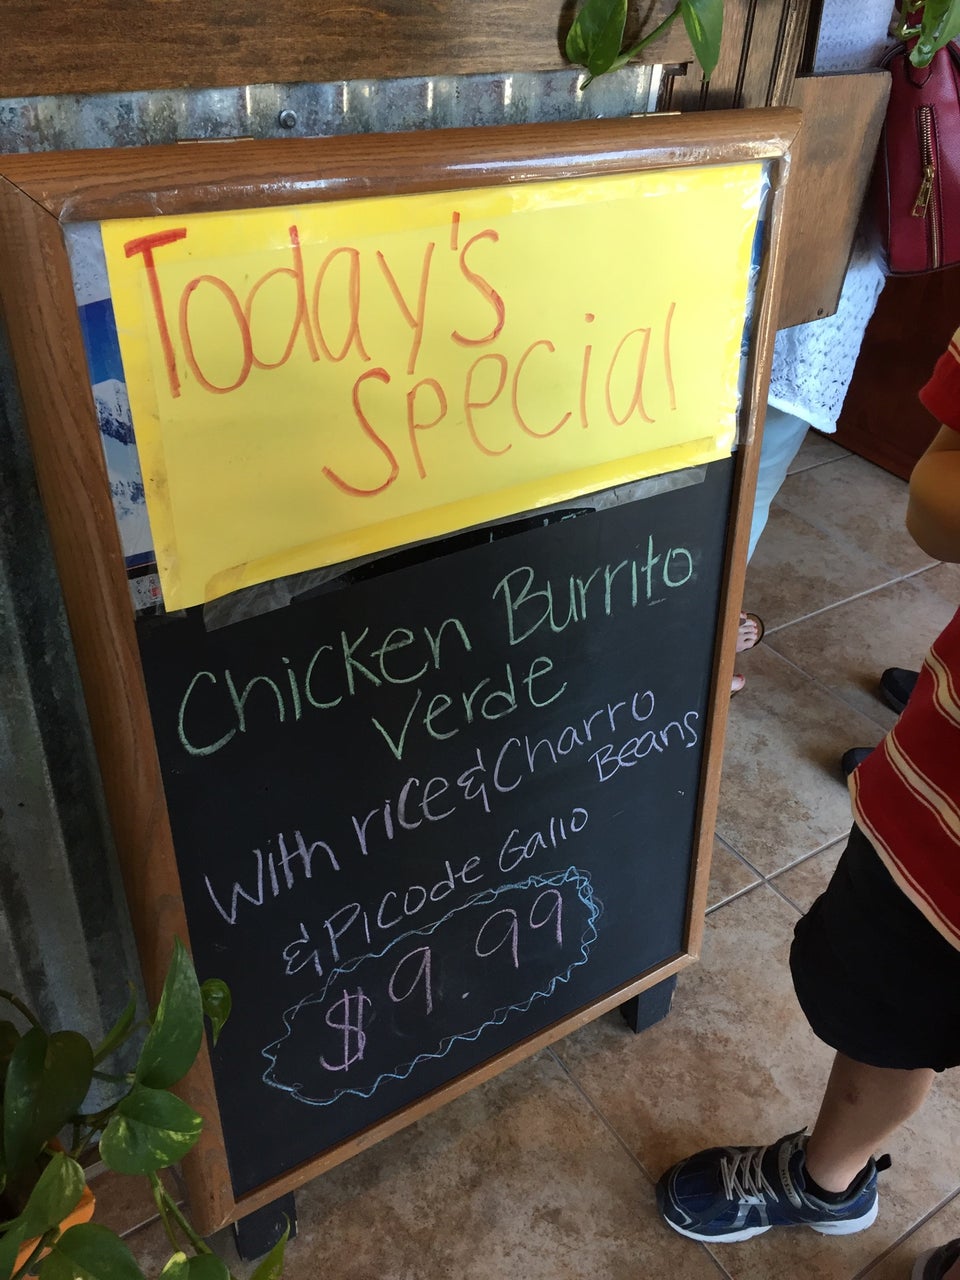 Today's
Special
Chicken Burrito
Verde
With rice & Charro
Beans
& Picode Gallo
$9.99